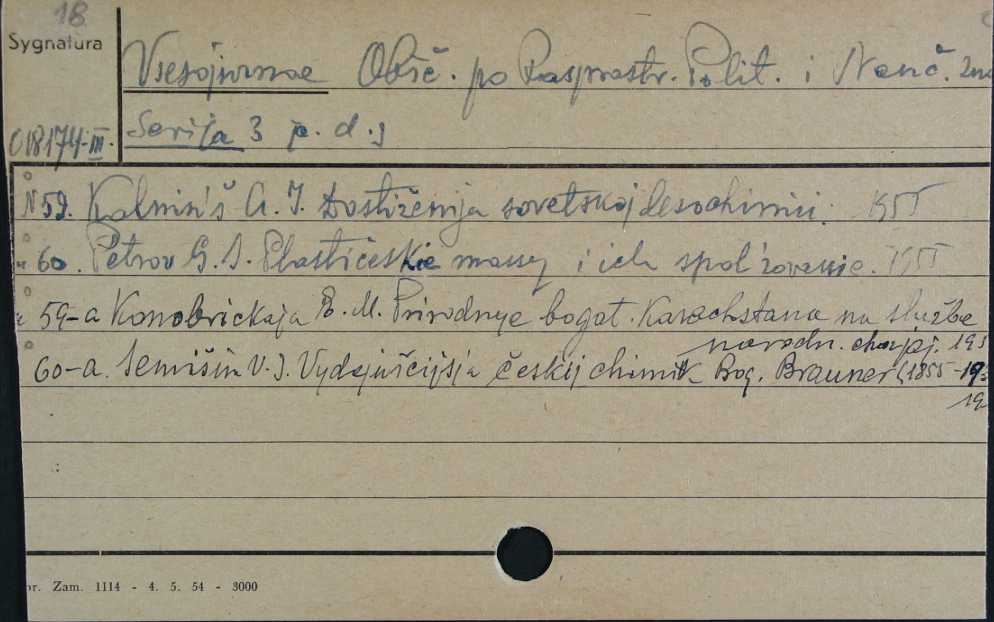 18
Sygnatura
Vsesojuznoe Obšč. po Rasprostr. Polit. i Nauč. Zna
C18174-III.
Serija 3 p. d. 9
N 59. Kalninš A. I. Dostiženija sovetskoj lesochimii. 1955
" 60. Petrov G. S. Plastičeskie massy i ich spol'zovanie. 1955
" 59-a Konobrickaja E. M. Prirodnye bogat. Kazachstana na službe
narodn. chozjaj. 195
60-a. Semišin V. I. Vydajuščijsja češkij chimik Bog. Brauner (1855-193
19
nr. Zam. 1114 - 4. 5. 54 - 3000